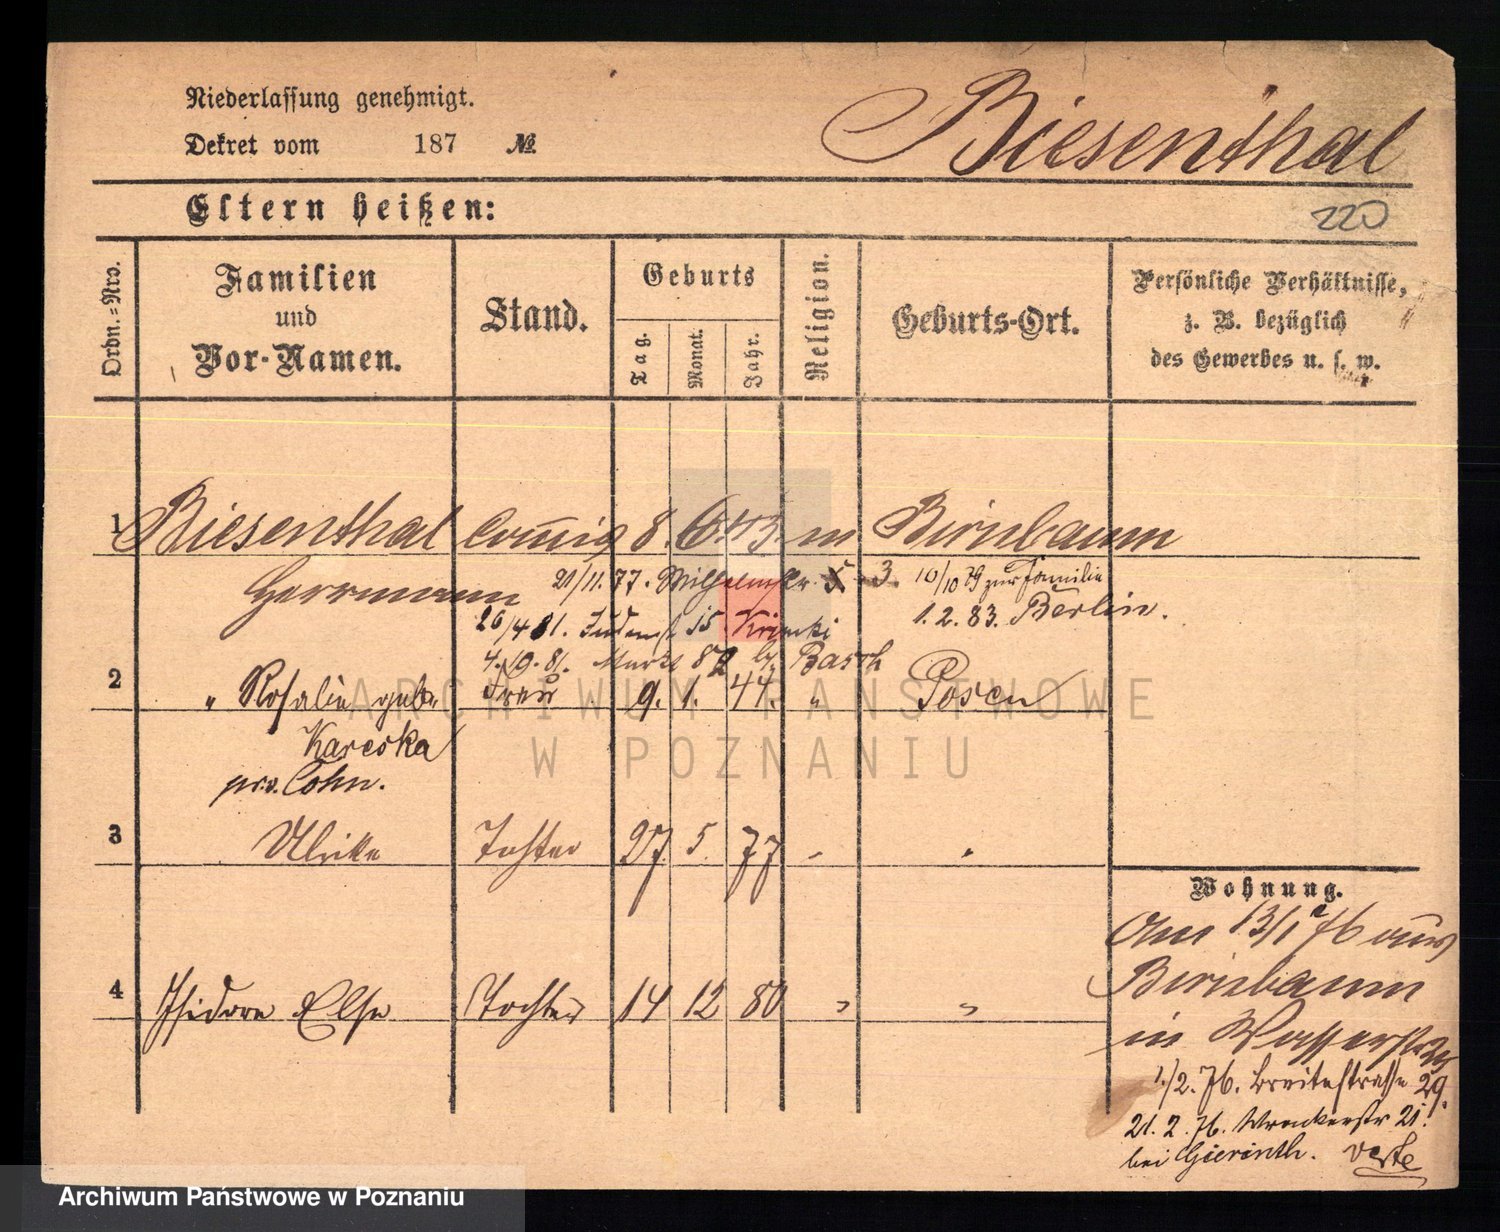 Niederlassung genehmigt.
Dekret vom 187 №
Biesenthal
Eltern heißen:
220
Ordn.-Nro.
Familien
und
Vor-Namen.
Stand.
Geburts
Tag.
Monat.
Jahr.
Religion.
Geburts-Ort.
Persönliche Verhältnisse,
z. B. bezüglich
des Gewerbes u. s. w.
1 Biesenthal Commis 8. 6 43. m Birnbaum
Herrmann
21/11. 77. Wilhelmstr. 3. 10/10 79 zur Familie
26/4 81. 15 1. 2. 83. Berlin.
4. 10. 81. Markt 82 b. Basch
2 " Rosalie geb. Frau 9. 1. 44. " Posen
Kareska
pr. Cohn.
3 Ulrike Tochter 27. 5. 77 " "
4 Isidore Else Tochter 14 12 80 " "
Wohnung.
Am 13/1 76 aus
Birnbaum
in Wasserstr.
1./2. 76. Breitestrasse 29.
21. 2. 76. Wronkerstr 21.
bei Gierinth. verte
ARCHIWUM PAŃSTWOWE
W POZNANIU
Archiwum Państwowe w Poznaniu